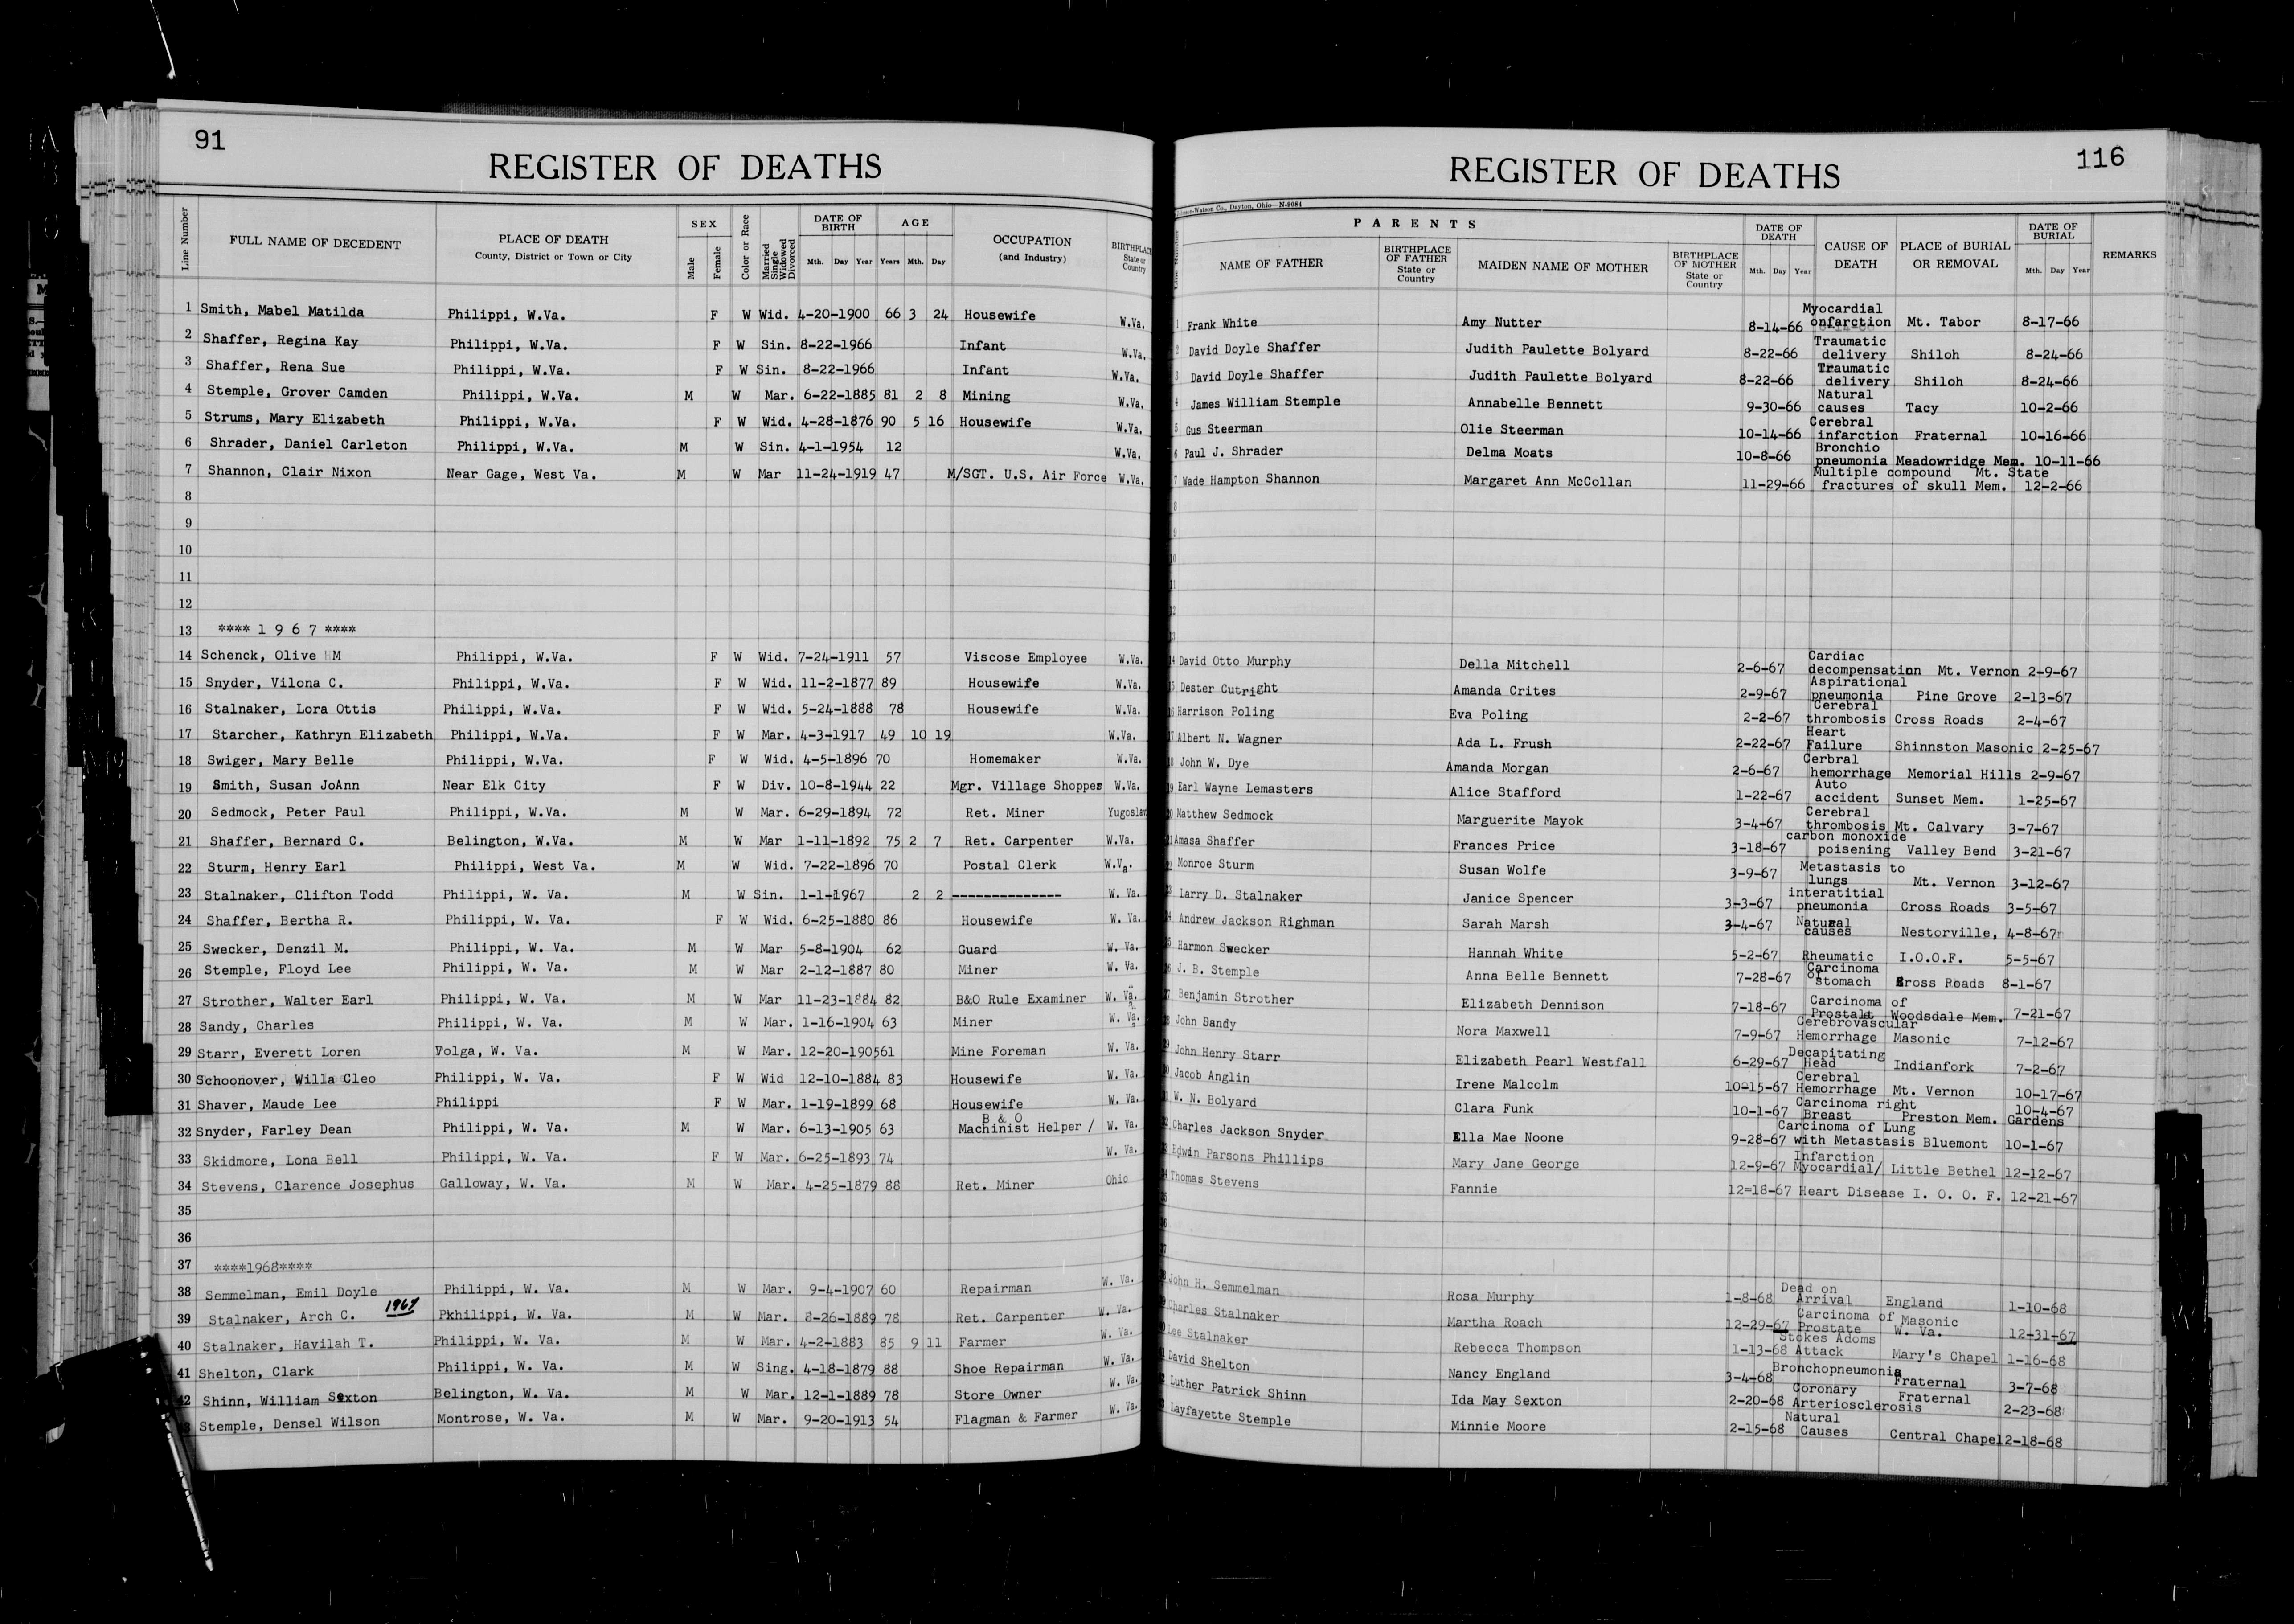 91
REGISTER OF DEATHS
Line Number
FULL NAME OF DECEDENT
PLACE OF DEATH
County, District or Town or City
SEX
Male
Female
Color or Race
Married
Single
Widowed
Divorced
DATE OF BIRTH
Mth. Day Year
AGE
Years Mth. Day
OCCUPATION
(and Industry)
BIRTHPLACE
State or
Country
1 Smith, Mabel Matilda Philippi, W.Va. F W Wid. 4-20-1900 66 3 24 Housewife W.Va.
2 Shaffer, Regina Kay Philippi, W.Va. F W Sin. 8-22-1966 Infant W.Va.
3 Shaffer, Rena Sue Philippi, W.Va. F W Sin. 8-22-1966 Infant W.Va.
4 Stemple, Grover Camden Philippi, W.Va. M W Mar. 6-22-1885 81 2 8 Mining W.Va.
5 Strums, Mary Elizabeth Philippi, W.Va. F W Wid. 4-28-1876 90 5 16 Housewife W.Va.
6 Shrader, Daniel Carleton Philippi, W.Va. M W Sin. 4-1-1954 12 W.Va.
7 Shannon, Clair Nixon Near Gage, West Va. M W Mar 11-24-1919 47 M/SGT. U.S. Air Force W.Va.
8
9
10
11
12
13 **** 1 9 6 7 ****
14 Schenck, Olive M Philippi, W.Va. F W Wid. 7-24-1911 57 Viscose Employee W.Va.
15 Snyder, Vilona C. Philippi, W.Va. F W Wid. 11-2-1877 89 Housewife W.Va.
16 Stalnaker, Lora Ottis Philippi, W.Va. F W Wid. 5-24-1888 78 Housewife W.Va.
17 Starcher, Kathryn Elizabeth Philippi, W.Va. F W Mar. 4-3-1917 49 10 19 W.Va.
18 Swiger, Mary Belle Philippi, W.Va. F W Wid. 4-5-1896 70 Homemaker W.Va.
19 Smith, Susan JoAnn Near Elk City F W Div. 10-8-1944 22 Mgr. Village Shoppes W.Va.
20 Sedmock, Peter Paul Philippi, W.Va. M W Mar. 6-29-1894 72 Ret. Miner Yugoslav
21 Shaffer, Bernard C. Belington, W.Va. M W Mar 1-11-1892 75 2 7 Ret. Carpenter W.Va.
22 Sturm, Henry Earl Philippi, West Va. M W Wid. 7-22-1896 70 Postal Clerk W.Va.
23 Stalnaker, Clifton Todd Philippi, W. Va. M W Sin. 1-1-1967 2 2 -------------- W. Va.
24 Shaffer, Bertha R. Philippi, W. Va. F W Wid. 6-25-1880 86 Housewife W. Va.
25 Swecker, Denzil M. Philippi, W. Va. M W Mar 5-8-1904 62 Guard W. Va.
26 Stemple, Floyd Lee Philippi, W. Va. M W Mar 2-12-1887 80 Miner W. Va.
27 Strother, Walter Earl Philippi, W. Va. M W Mar 11-23-1884 82 B&O Rule Examiner W. Va.
28 Sandy, Charles Philippi, W. Va. M W Mar. 1-16-1904 63 Miner W. Va.
29 Starr, Everett Loren Volga, W. Va. M W Mar. 12-20-1905 61 Mine Foreman W. Va.
30 Schoonover, Willa Cleo Philippi, W. Va. F W Wid 12-10-1884 83 Housewife W. Va.
31 Shaver, Maude Lee Philippi F W Mar. 1-19-1899 68 Housewife W. Va.
32 Snyder, Farley Dean Philippi, W. Va. M W Mar. 6-13-1905 63 B & O Machinist Helper / W. Va.
33 Skidmore, Lona Bell Philippi, W. Va. F W Mar. 6-25-1893 74 W. Va.
34 Stevens, Clarence Josephus Galloway, W. Va. M W Mar. 4-25-1879 88 Ret. Miner Ohio
35
36
37 ****1968****
38 Semmelman, Emil Doyle Philippi, W. Va. M W Mar. 9-4-1907 60 Repairman W. Va.
39 Stalnaker, Arch C. 1967 Pkhilippi, W. Va. M W Mar. 8-26-1889 78 Ret. Carpenter W. Va.
40 Stalnaker, Havilah T. Philippi, W. Va. M W Mar. 4-2-1883 85 9 11 Farmer W. Va.
41 Shelton, Clark Philippi, W. Va. M W Sing. 4-18-1879 88 Shoe Repairman W. Va.
42 Shinn, William Sexton Belington, W. Va. M W Mar. 12-1-1889 78 Store Owner W. Va.
Stemple, Densel Wilson Montrose, W. Va. M W Mar. 9-20-1913 54 Flagman & Farmer W. Va.
116
REGISTER OF DEATHS
Watson Co., Dayton, Ohio—N-9084
PARENTS
NAME OF FATHER
BIRTHPLACE OF FATHER
State or Country
MAIDEN NAME OF MOTHER
BIRTHPLACE OF MOTHER
State or Country
DATE OF DEATH
Mth. Day Year
CAUSE OF DEATH
PLACE of BURIAL OR REMOVAL
DATE OF BURIAL
Mth. Day Year
REMARKS
1 Frank White Amy Nutter 8-14-66 Myocardial onfarction Mt. Tabor 8-17-66
2 David Doyle Shaffer Judith Paulette Bolyard 8-22-66 Traumatic delivery Shiloh 8-24-66
3 David Doyle Shaffer Judith Paulette Bolyard 8-22-66 Traumatic delivery Shiloh 8-24-66
4 James William Stemple Annabelle Bennett 9-30-66 Natural causes Tacy 10-2-66
5 Gus Steerman Olie Steerman 10-14-66 Cerebral infarction Fraternal 10-16-66
6 Paul J. Shrader Delma Moats 10-8-66 Bronchio pneumonia Meadowridge Mem. 10-11-66
7 Wade Hampton Shannon Margaret Ann McCollan 11-29-66 Multiple compound fractures of skull Mt. State Mem. 12-2-66
8
9
10
11
12
13
14 David Otto Murphy Della Mitchell 2-6-67 Cardiac decompensation Mt. Vernon 2-9-67
15 Dester Cutright Amanda Crites 2-9-67 Aspirational pneumonia Pine Grove 2-13-67
16 Harrison Poling Eva Poling 2-2-67 Cerebral thrombosis Cross Roads 2-4-67
17 Albert N. Wagner Ada L. Frush 2-22-67 Heart Failure Shinnston Masonic 2-25-67
18 John W. Dye Amanda Morgan 2-6-67 Cerbral hemorrhage Memorial Hills 2-9-67
19 Earl Wayne Lemasters Alice Stafford 1-22-67 Auto accident Sunset Mem. 1-25-67
20 Matthew Sedmock Marguerite Mayok 3-4-67 Cerebral thrombosis Mt. Calvary 3-7-67
21 Amasa Shaffer Frances Price 3-18-67 carbon monoxide poisening Valley Bend 3-21-67
Monroe Sturm Susan Wolfe 3-9-67 Metastasis to lungs Mt. Vernon 3-12-67
Larry D. Stalnaker Janice Spencer 3-3-67 interatitial pneumonia Cross Roads 3-5-67
Andrew Jackson Righman Sarah Marsh 3-4-67 Natural causes Nestorville, 4-8-67
Harmon Swecker Hannah White 5-2-67 Rheumatic I.O.O.F. 5-5-67
J. B. Stemple Anna Belle Bennett 7-28-67 Carcinoma of stomach Cross Roads 8-1-67
Benjamin Strother Elizabeth Dennison 7-18-67 Carcinoma of Prostate Woodsdale Mem. 7-21-67
John Sandy Nora Maxwell 7-9-67 Cerebrovascular Hemorrhage Masonic 7-12-67
John Henry Starr Elizabeth Pearl Westfall 6-29-67 Decapitating Head Indianfork 7-2-67
Jacob Anglin Irene Malcolm 10-15-67 Cerebral Hemorrhage Mt. Vernon 10-17-67
W. N. Bolyard Clara Funk 10-1-67 Carcinoma right Breast Preston Mem. Gardens 10-4-67
Charles Jackson Snyder Ella Mae Noone 9-28-67 Carcinoma of Lung with Metastasis Bluemont 10-1-67
Edwin Parsons Phillips Mary Jane George 12-9-67 Infarction Myocardial/ Little Bethel 12-12-67
Thomas Stevens Fannie 12=18-67 Heart Disease I. O. O. F. 12-21-67
John H. Semmelman Rosa Murphy 1-8-68 Dead on Arrival England 1-10-68
Charles Stalnaker Martha Roach 12-29-67 Carcinoma of Prostate Masonic W. Va. 12-31-67
Lee Stalnaker Rebecca Thompson 1-13-68 Stokes Adoms Attack Mary's Chapel 1-16-68
David Shelton Nancy England 3-4-68 Bronchopneumonia Fraternal 3-7-68
Luther Patrick Shinn Ida May Sexton 2-20-68 Coronary Arteriosclerosis Fraternal 2-23-68
Layfayette Stemple Minnie Moore 2-15-68 Natural Causes Central Chapel 2-18-68